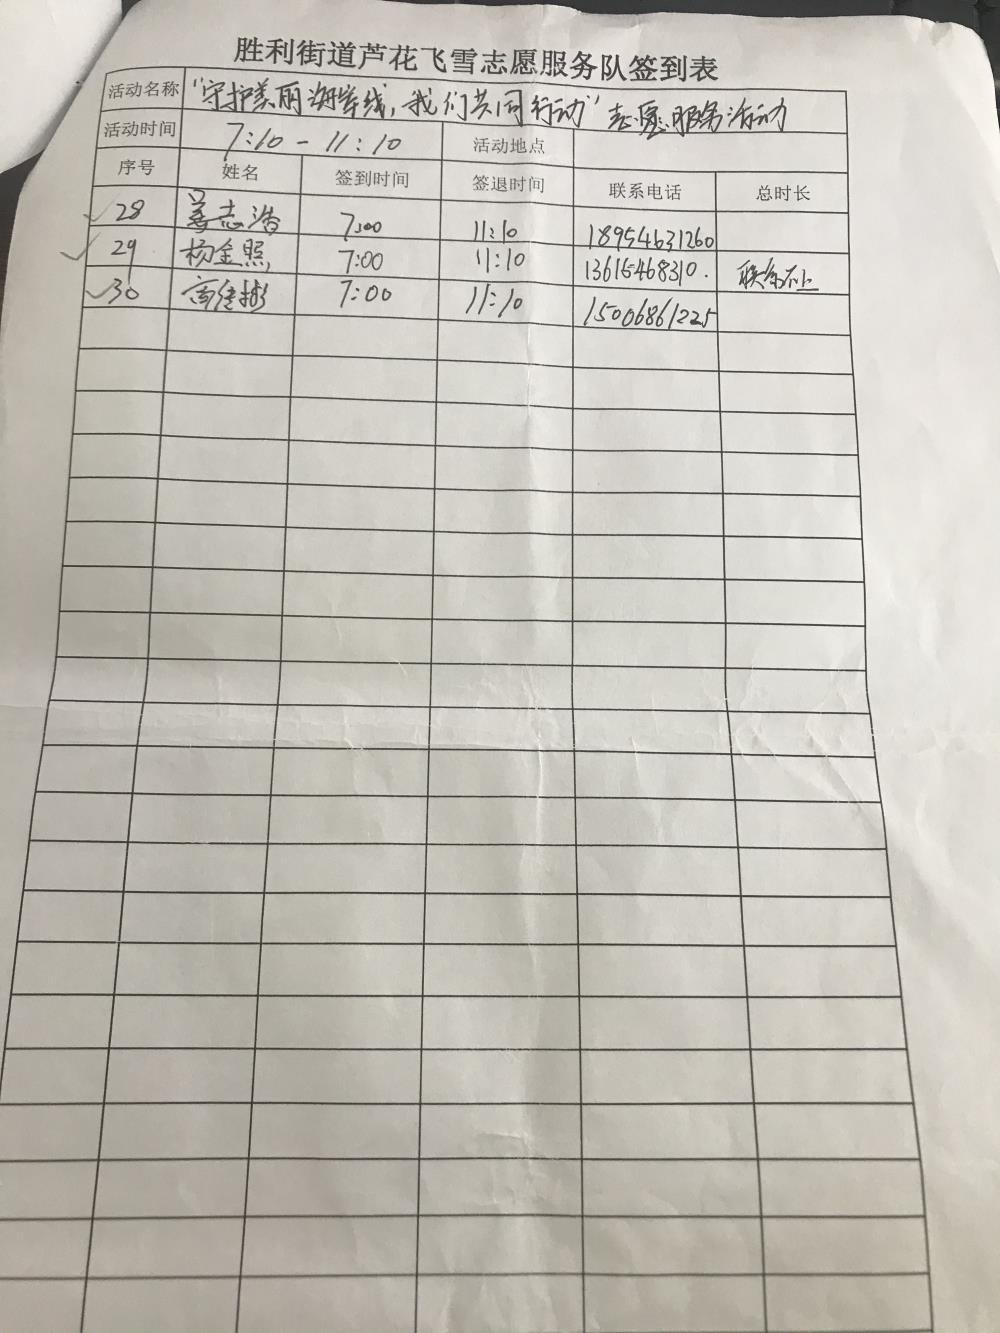 胜利街道芦花飞雪志愿服务队签到表
活动名称 "守护美丽海岸线,我们共同行动"志愿服务活动
活动时间 7:10-11:10 活动地点
序号 姓名 签到时间 签退时间 联系电话 总时长
28 志浩 7:00 11:10 18954631260
29 杨金照 7:00 11:10 13615468310. 联系不上
30 高佳彬 7:00 11:10 15006861225